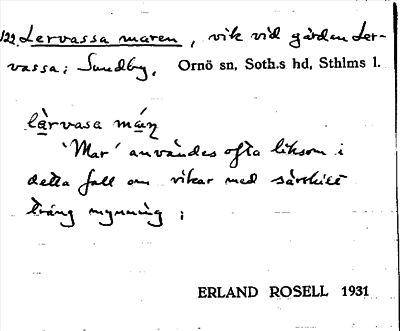 122. Lervassa maren, vik vid gården Ler-
vassa; Sundby, Ornö sn, Soth.s hd, Sthlms l.
lärvasa máṇ
'Mar' användes ofta liksom i
detta fall om vikar med särskilt
trång mynning;
ERLAND ROSELL 1931